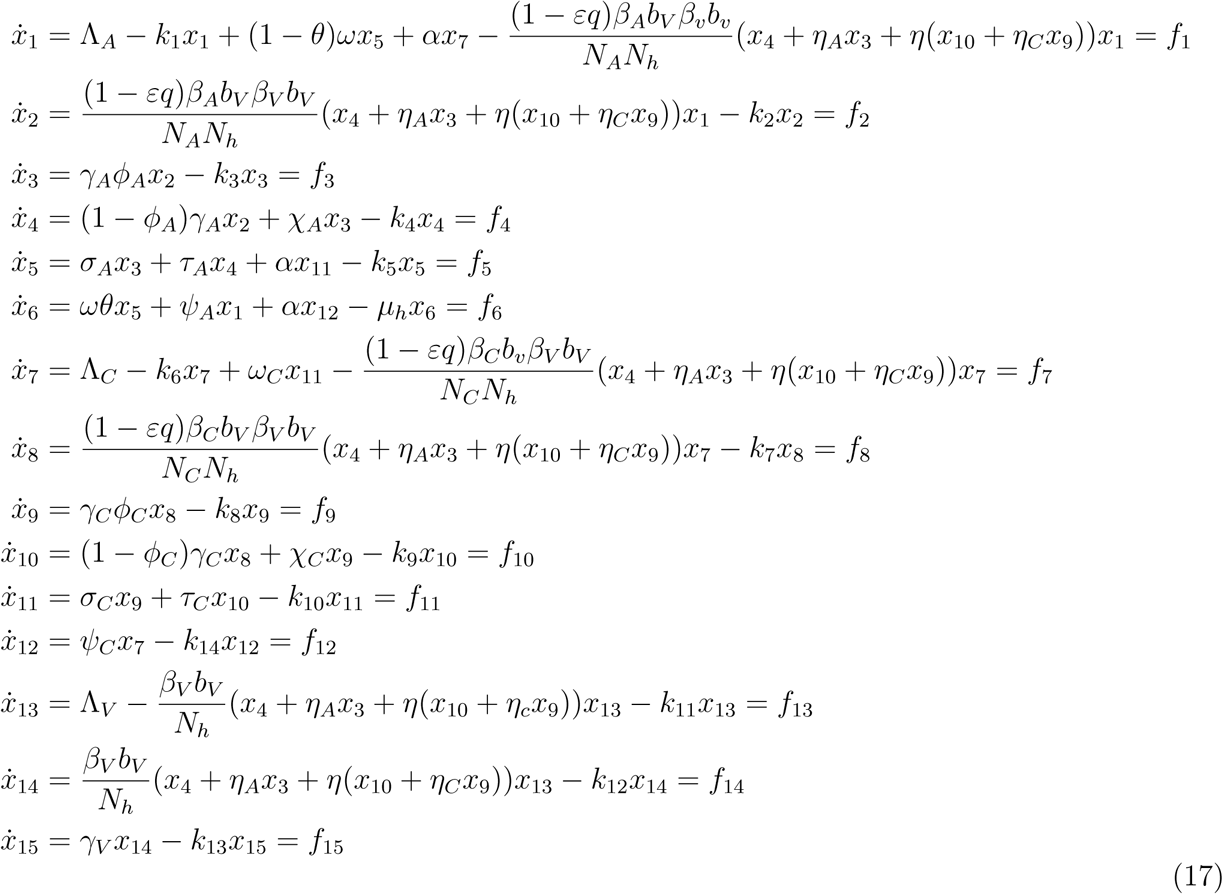 ẋ₁ = Λ_A − k₁x₁ + (1 − θ)ωx₅ + αx₇ − \frac{(1 − εq)β_A b_V β_v b_v}{N_A N_h}(x₄ + η_A x₃ + η(x₁₀ + η_C x₉))x₁ = f₁
ẋ₂ = \frac{(1 − εq)β_A b_V β_V b_V}{N_A N_h}(x₄ + η_A x₃ + η(x₁₀ + η_C x₉))x₁ − k₂x₂ = f₂
ẋ₃ = γ_A ϕ_A x₂ − k₃x₃ = f₃
ẋ₄ = (1 − ϕ_A)γ_A x₂ + χ_A x₃ − k₄x₄ = f₄
ẋ₅ = σ_A x₃ + τ_A x₄ + αx₁₁ − k₅x₅ = f₅
ẋ₆ = ωθx₅ + ψ_A x₁ + αx₁₂ − μ_h x₆ = f₆
ẋ₇ = Λ_C − k₆x₇ + ω_C x₁₁ − \frac{(1 − εq)β_C b_v β_V b_V}{N_C N_h}(x₄ + η_A x₃ + η(x₁₀ + η_C x₉))x₇ = f₇
ẋ₈ = \frac{(1 − εq)β_C b_V β_V b_V}{N_C N_h}(x₄ + η_A x₃ + η(x₁₀ + η_C x₉))x₇ − k₇x₈ = f₈
ẋ₉ = γ_C ϕ_C x₈ − k₈x₉ = f₉
ẋ₁₀ = (1 − ϕ_C)γ_C x₈ + χ_C x₉ − k₉x₁₀ = f₁₀
ẋ₁₁ = σ_C x₉ + τ_C x₁₀ − k₁₀x₁₁ = f₁₁
ẋ₁₂ = ψ_C x₇ − k₁₄x₁₂ = f₁₂
ẋ₁₃ = Λ_V − \frac{β_V b_V}{N_h}(x₄ + η_A x₃ + η(x₁₀ + η_c x₉))x₁₃ − k₁₁x₁₃ = f₁₃
ẋ₁₄ = \frac{β_V b_V}{N_h}(x₄ + η_A x₃ + η(x₁₀ + η_C x₉))x₁₃ − k₁₂x₁₄ = f₁₄
ẋ₁₅ = γ_V x₁₄ − k₁₃x₁₅ = f₁₅
(17)